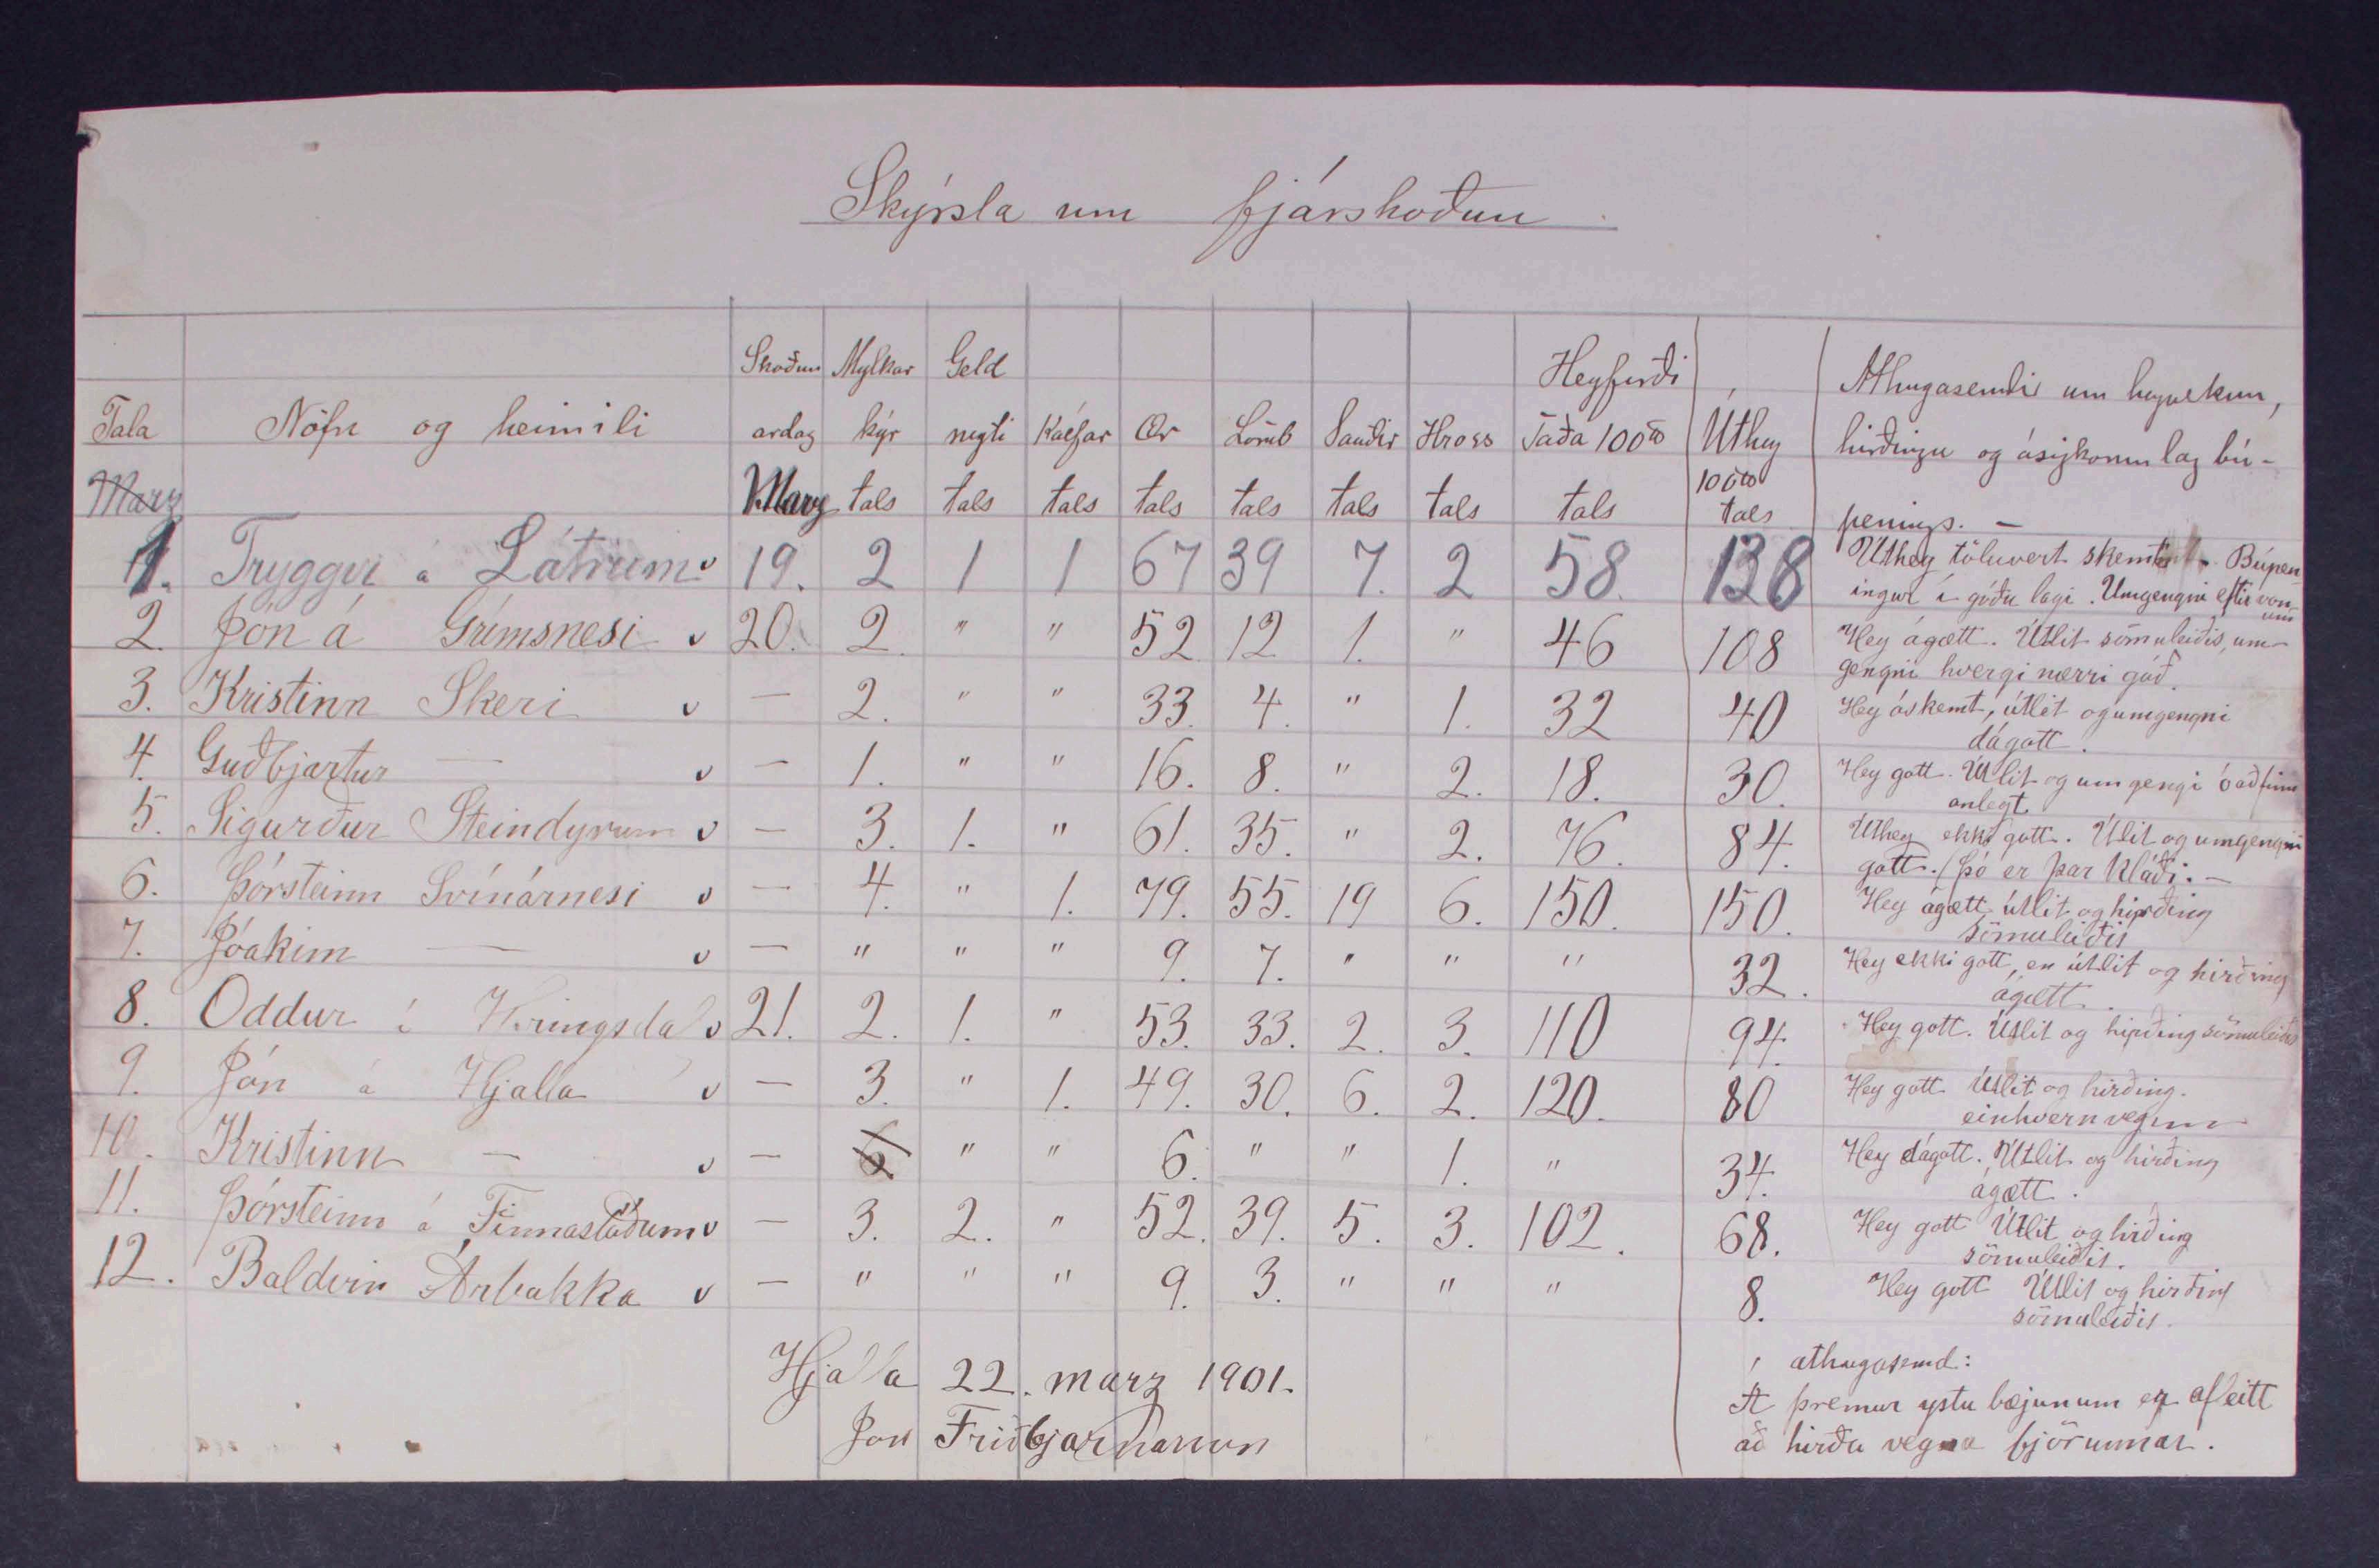 Skýrsla um fjárskoðun
Skoðun Mylkar Geld Heyforði Athugasemdir um heyverkun,
Tala Nöfn og heimili ardag kýr neyti Kálfar Ær Lömb Sauðir Hross Taða 100 Úthey hirðingu og ásigkomulag bú-
Marz Marz tals tals tals tals tals tals tals tals 100 tals penings. —
1. Tryggvi á Látrum v 19. 2 1 1 67 39 7. 2 58. 138 Úthey töluvert skemt. Búpen
ingur í góðu lagi. Umgengni eftir von-
um
2. Jón á Grímsnesi v 20. 2. " " 52 12 1. " 46 108 Hey ágætt. Útlit sömuleiðis, um-
gengni hvergi nærri góð.
3. Kristinn Skeri v — 2. " " 33. 4. " 1. 32 40 Hey óskemt, útlit og umgengni
dágott.
4. Guðbjartur — v — 1. " " 16. 8. " 2. 18. 30. Hey gott. Útlit og umgengi óaðfinn
anlegt.
5. Sigurður Steindyrum v — 3. 1. " 61. 35. " 2. 76. 84. Úthey ekki gott. Úlit og umgengni
gott. Þó er þar kláði. —
6. Þórsteinn Svínárnesi v — 4. " 1. 79. 55. 19 6. 150. 150. Hey ágætt útlit og hirðing
sömuleiðis
7. Jóakim — v — " " " 9. 7. " " " 32. Hey ekki gott, en útlit og hirðing
ágætt.
8. Oddur í Hringsdal v 21. 2. 1. " 53. 33. 2. 3. 110 94. Hey gott. Útlit og hirðing sömuleiðis
9. Jón á Hjalla v — 3. " 1. 49. 30. 6. 2. 120. 80 Hey gott Útlit og hirðing.
einhvern veginn
10. Kristinn — v — 6 " " 6. " " 1. " 34. Hey dágott. Útlit og hirðing
ágætt.
11. Þórsteinn á Finnastöðum v — 3. 2. " 52. 39. 5. 3. 102. 68. Hey gott Útlit og hirðing
sömuleiðis.
12. Baldvin Árbakka v — " " " 9. 3. " " " 8. Hey gott Útlit og hirðing
sömuleiðis.
Hjalla 22. marz 1901.
Jón Friðbjarnarson
athugasemd:
Á þremur ystu bæjunum er afleitt
að hirða vegna fjörunnar.